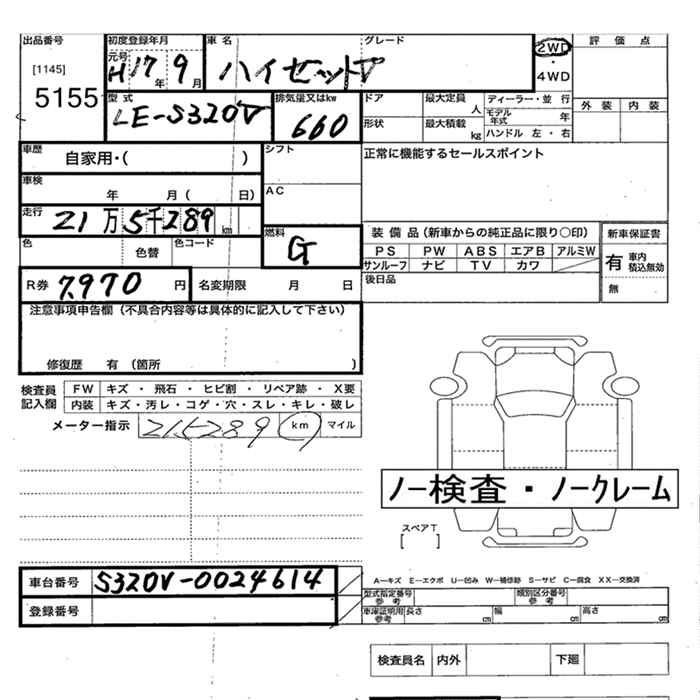 出品番号 初度登録年月 車名 グレード 2WD・4WD 評価点
[1145] 元号 H17年 9月 ハイゼットV
5155
型式 排気量又はkw ドア 最大定員 人 ディーラー・並行 外装 内装
LE-S320V 660 モデル年式 年
形状 最大積載 kg ハンドル 左・右
車歴 自家用・( ) シフト 正常に機能するセールスポイント
車検 年 月( 日) AC
走行 21万5千289km
色 色替 色コード 燃料 G 装備品(新車からの純正品に限り○印) 新車保証書
PS PW ABS エアB アルミW 有 車内積込無効
サンルーフ ナビ TV カワ
R券 7,970円 名変期限 月 日 後日品 無
注意事項申告欄(不具合内容等は具体的に記入して下さい)
修復歴 有(箇所 )
検査員記入欄 FW キズ・飛石・ヒビ割・リペア跡・X要
内装 キズ・汚レ・コゲ・穴・スレ・キレ・破レ
メーター指示 215289 km マイル
ノー検査・ノークレーム
スペアT
[ ]
車台番号 S320V-0024614 A-キズ E-エクボ U-凹み W-補修跡 S-サビ C-腐食 XX-交換済
型式指定番号参考 類別区分番号参考
登録番号 車庫証明用参考 長さ cm 幅 cm 高さ cm
検査員名 内外 下廻